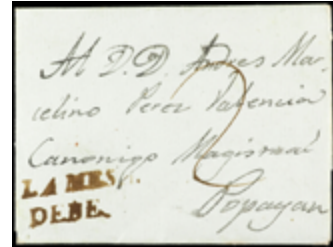 Al D.D. Andres Mar-
celino Perez Valencia
Canonigo Magistral
LA MES.
DEBE.
Popayan
2